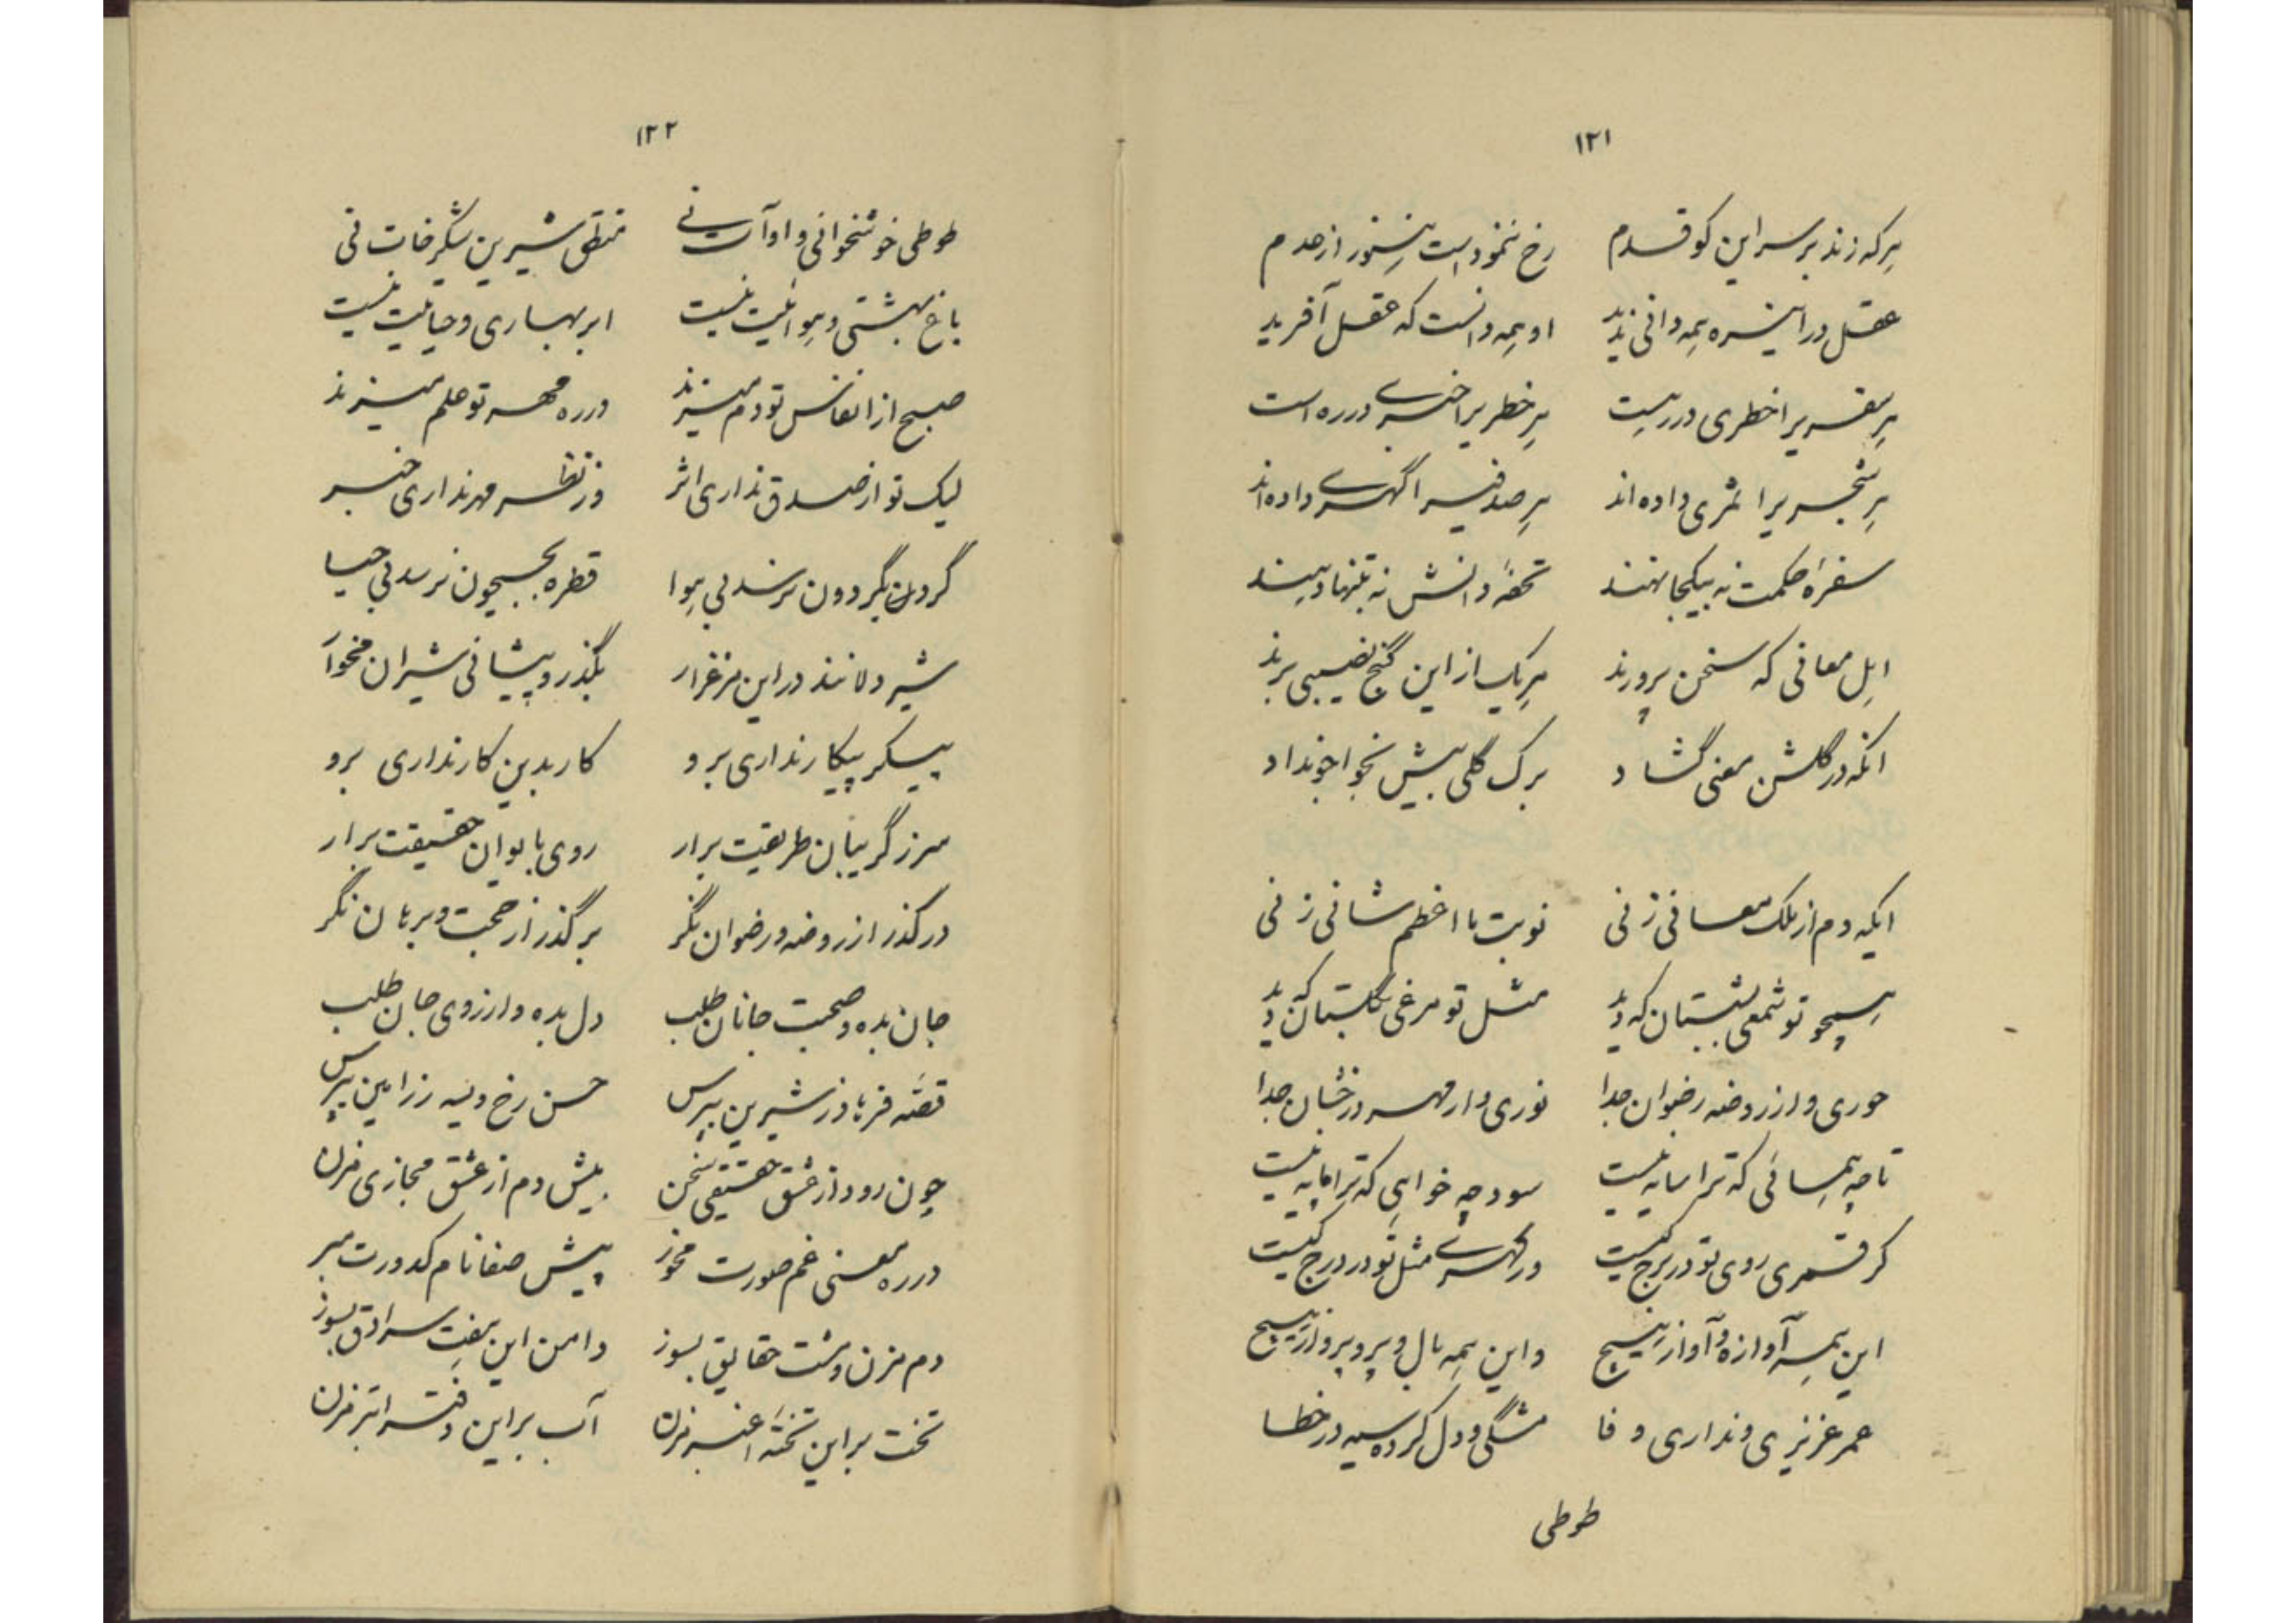 ۱۲۱
هرکه زند بر سر این کو قدم رخ ننمودست هنوز از عدم
عقل در این ره همه دانی ندید او همه دانست که عقل آفرید
هر سفریرا خطری در رهست هر خطریرا خضری در ره است
هر شجریرا ثمری داده‌اند هر صدفیرا گهری داده‌اند
سفرهٔ حکمت نه بیکجا نهند تحفهٔ دانش نه بتنها دهند
اهل معانی که سخن پرورند هر یک از این گنج نصیبی برند
انکه در گلشن معنی گشاد برک گلی بیش بخواجو نداد
ایکه دم از ملک معانی زنی نوبت ما اعظم شانی زنی
همچو تو شمعی بشبستان که دید مثل تو مرغی بگلستان که دید
حوری و از روضه رضوان جدا نوری و از مهر درخشان جدا
تا چه همائی که ترا سایه نیست سود چه خواهی که ترا مایه نیست
گر قمری روی تو در برج کیست ور گهری مثل تو در درج کیست
این همه آوازه و آواز هیچ واین همه بال و پر و پرواز هیچ
عمر عزیزی و نداری وفا مشگی و دل کرده سیه در خطا
طوطی
۱۲۲
طوطی خوشخوانی و اوات نی منطق شیرین شکرخات نی
باغ بهشتی و هوائیت نیست ابر بهاری و حیائیت نیست
صبح از انفاس تو دم میزند در ره مهر تو علم میزند
لیک تو از صدق نداری اثر وز نظر مهر نداری خبر
گرد بگردون نرسد بی هوا قطره بجیحون نرسد بی حیا
شیردلانند در این مرغزار بگذر و پیشانی شیران مخوار
پیکر پیکار نداری برو کار بدین کار نداری برو
سر ز گریبان طریقت برار روی بایوان حقیقت برار
درگذر از روضه و رضوان نگر برگذر از حجت و برهان نگر
جان بده و صحبت جانان طلب دل بده و ارزوی جان طلب
قصهٔ فرهاد ز شیرین بپرس حسن رخ ویسه ز رامین بپرس
چون رود از عشق حقیقی سخن بیش دم از عشق مجازی مزن
در ره معنی غم صورت مخور پیش صفا نام کدورت مبر
دم مزن و شت حقایق بسوز دامن این هفت سرادق بسوز
تخت براین تختهٔ اغبر مزن آب براین دفتر ابتر مزن